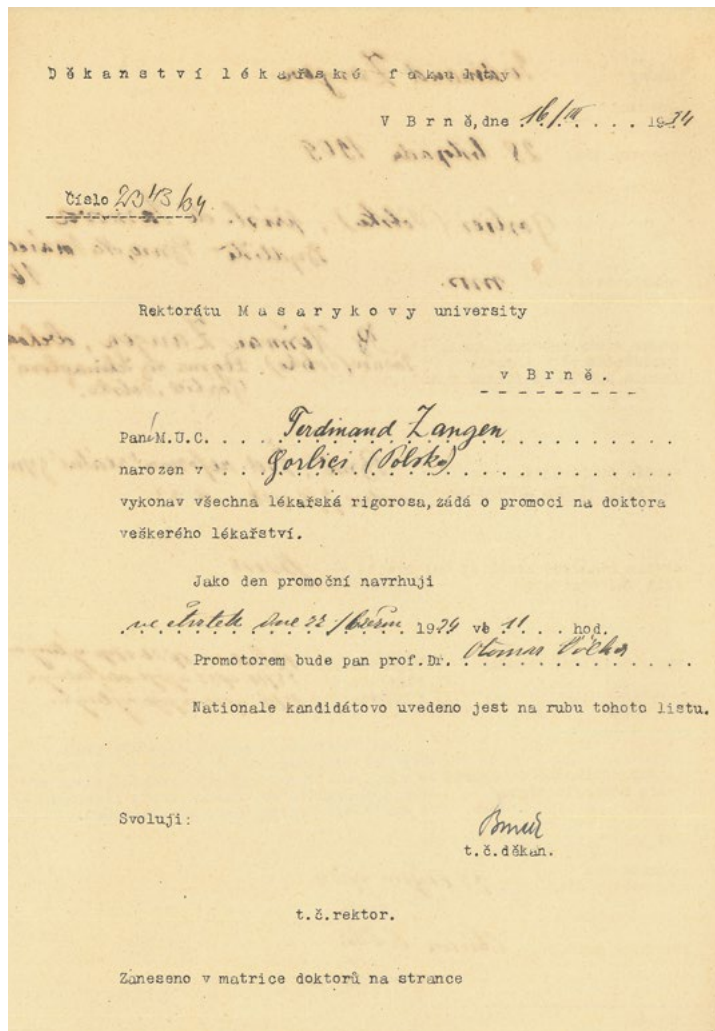 Děkanství lékařské fakulty
V Brně, dne 16/III . . . . 1934
Číslo 2343/34
Rektorátu Masarykovy university
v Brně.
Paní M.U.C. . . . . Ferdinand Zangen . . . . . . . . .
narozen v . . . Gorlici (Polsko) . . . . . . . . . . .
vykonav všechna lékařská rigorosa, zádá o promoci na doktora
veškerého lékařství.
Jako den promoční navrhuji
ve čtvrtek dne 22/března 1934 ve 11 . . . hod.
Promotorem bude pan prof. Dr. Otomar . . . . . . .
Nationale kandidátovo uvedeno jest na rubu tohoto listu.
Svoluji:
t.č. děkan.
t.č. rektor.
Zaneseno v matrice doktorů na strance